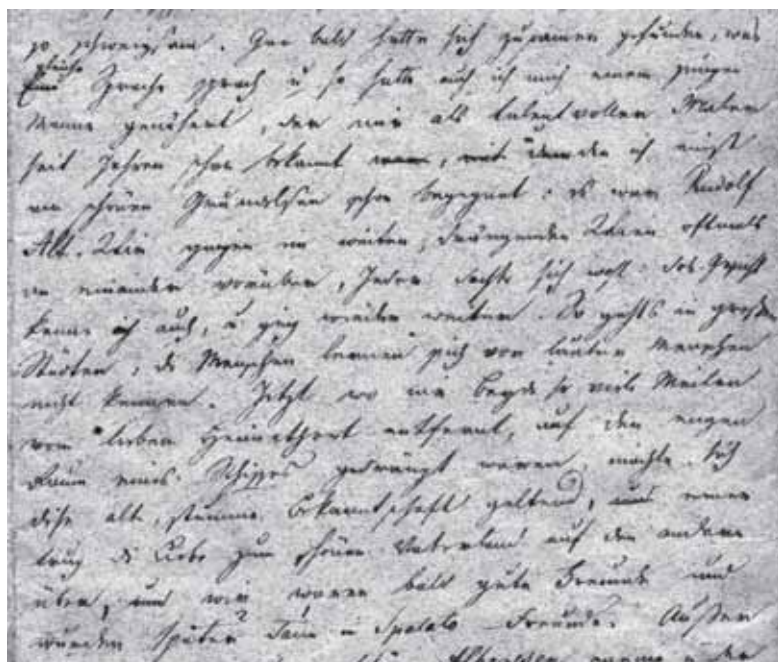 so schweigsam. Gar bald hatte sich zusamen gefunden, was
gleiche
Eine Sprache sprach u so hatte auch ich mich einem jungen
Manne genähert, der mir als talentvoller Maler
seit Jahren schon bekannt war, mit dem ich einst
am schönen Gmundlsee schon begegnet: es war Rudolf
Alt. Wir gingen im weiten, drängenden Wien oftmals
an einander vorüber, Jeder dachte sich wohl: das Gesicht
kenne ich auch, u ging wieder weiter. So gehts in großen
Städten; di Menschen lernen sich vor lauter Menschen
nicht kennen. Jetzt wo wir beyde so viele Meilen
vom lieben Heimathort entfernt, auf den engen
Raum eines Schiffes gedrängt waren, machte sich
dise alte, stumme Bekanntschaft geltend, uns einer
trug di Liebe zum schönen Vaterland auf den andern
über, und wir waren bald gute Freunde und
wurden später in Spalato Freunde. Außer